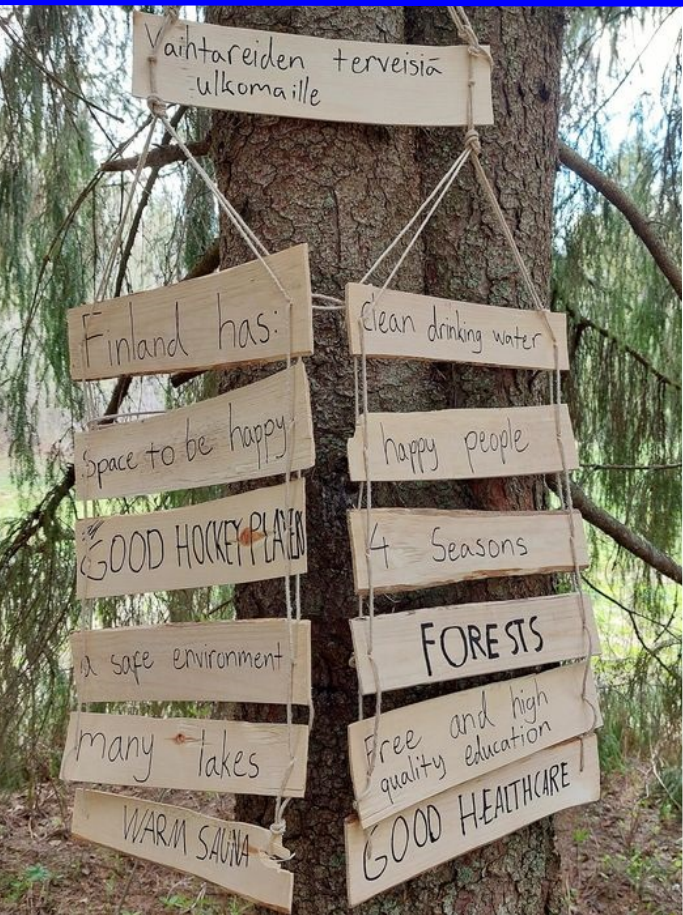 Vaihtareiden terveisiä
ulkomaille
Finland has:
Space to be happy
GOOD HOCKEY PLAYERS
a safe environment
many lakes
WARM SAUNA
Clean drinking water
happy people
4 Seasons
FORESTS
Free and high
quality education
GOOD HEALTHCARE